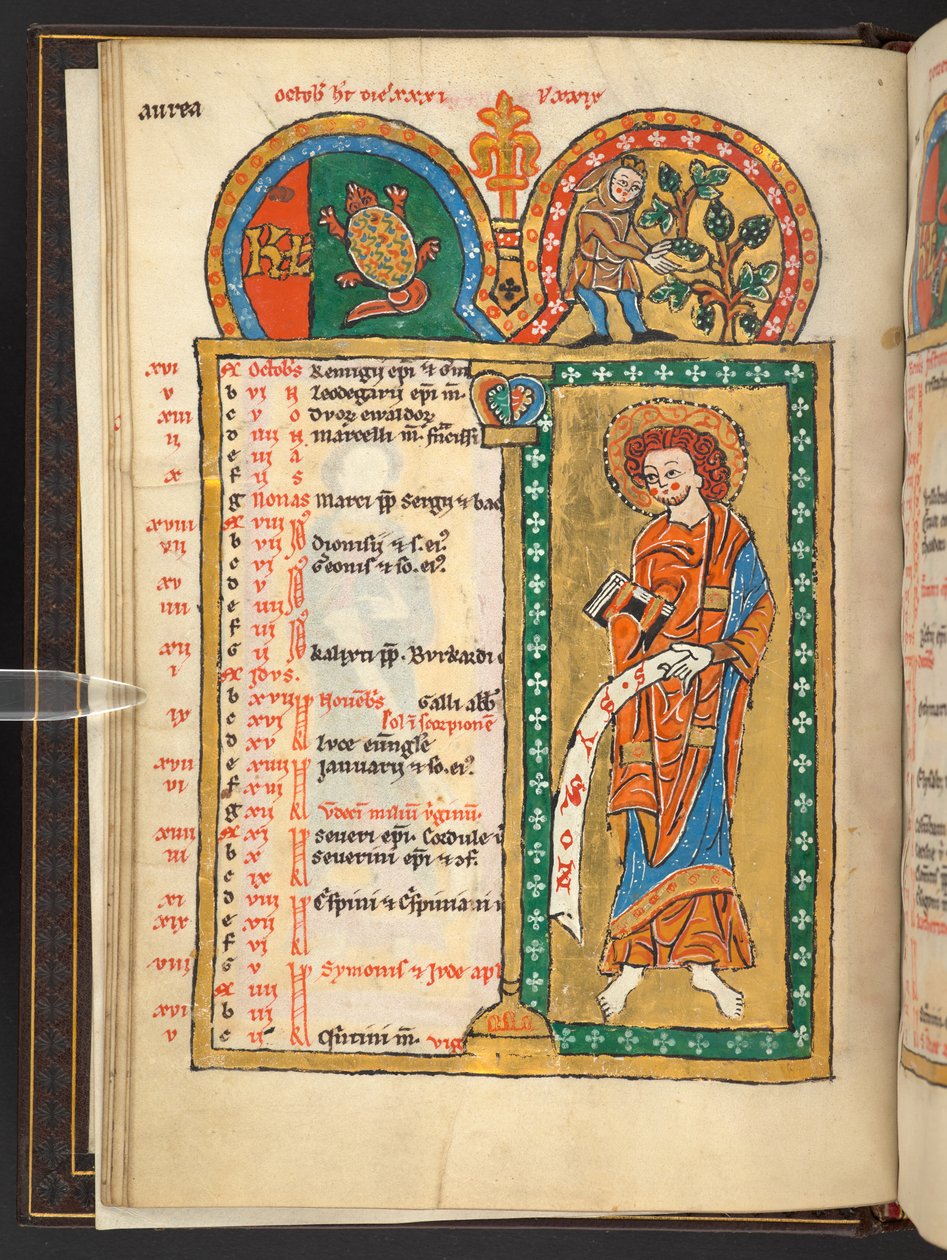 aurea
octob' ht dies xxxi
l' xxxix
KL
xvi A octob's Remigii epi &
v b vi N Leodegarii epi m.
xiii c v o duor ewaldor
ii d iiii N Marcelli m.
e iii a
x f ii s
g Nonas Marci pp Sergii & bac
xviii A viii
vii b vii Dionisii & s. ei'
c vi Gereonis & so. ei'
xv d v
iiii e iiii
f iii
xii G ii kalixti pp. Burkardi
i A Idus.
b xvii Nouemb's Galli abb'
ix c xvi sol i scorpione
d xv Luce eungle
xvii e xiiii Januarii & so. ei'
vi f xiii
g xii Undeci miliu uirginu.
xiiii A xi Seueri epi. Cordule
iii b x Seuerini epi & of.
c ix
xi d viii Crispini & Crispiniani
xix e vii
f vi
viii G v Symonis & Jude apl
A iiii
xvi b iii
v c ii Quintini m. vig
S. SYMON